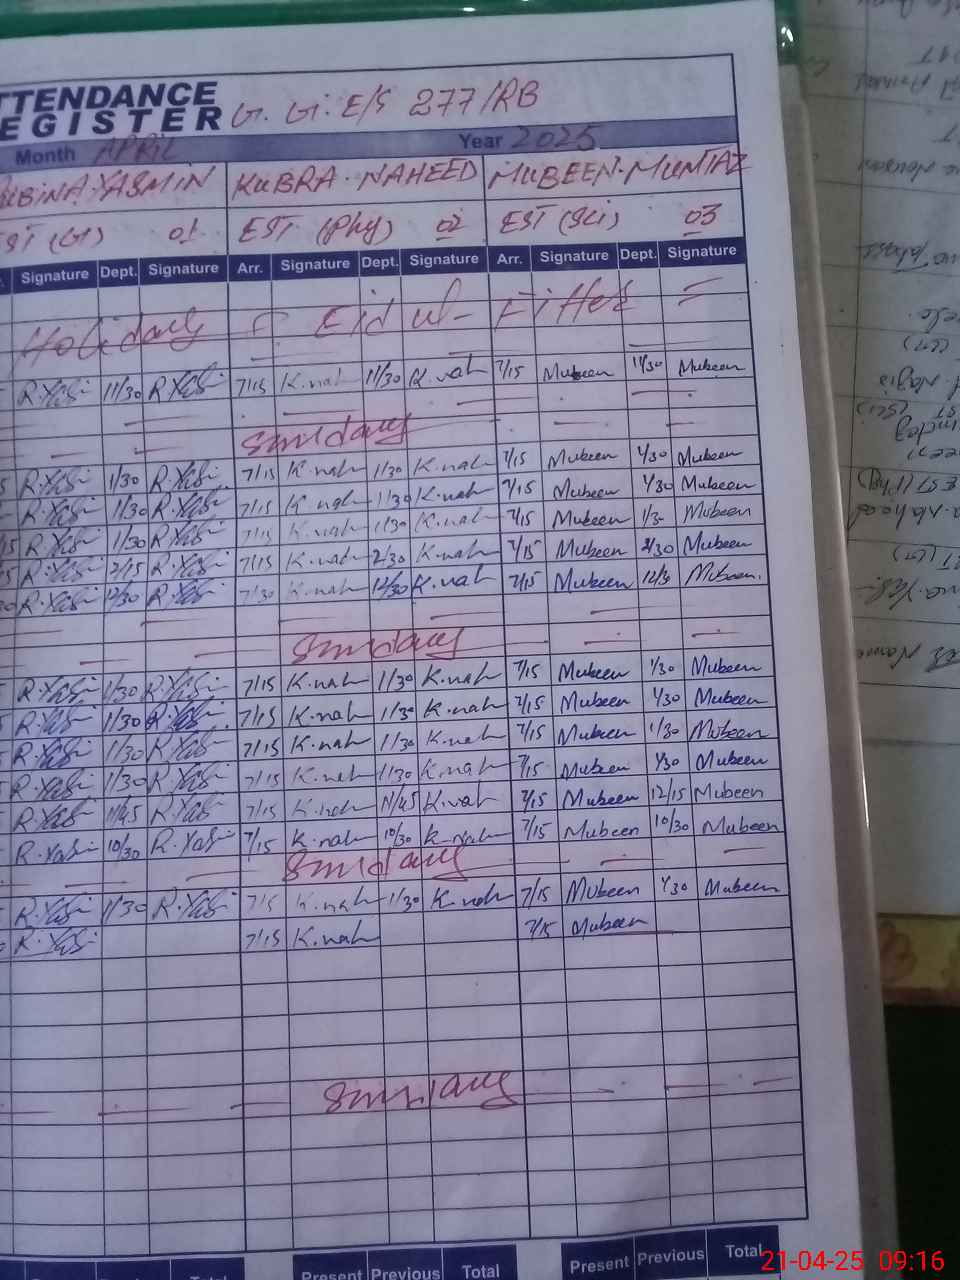 TTENDANCE
EGISTER G. G. E/S 277/RB
Month APRIL Year 2025
UBINA YASMIN KUBRA NAHEED MUBEEN MUMTAZ
ST (GT) 01 EST (Phy) 02 EST (Sci) 03
Signature Dept. Signature Arr. Signature Dept. Signature Arr. Signature Dept. Signature
Holiday Eid ul-Fitter
R.Yasi 11/30 R.Yasi 7/15 K.nah 11/30 K.nah 7/15 Mubeen 11/30 Mubeen
Sunday
R.Yasi 1/30 R.Yasi 7/15 K.nah 1/30 K.nah 7/15 Mubeen 1/30 Mubeen
R.Yasi 1/30 R.Yasi 7/15 K.nah 1/30 K.nah 7/15 Mubeen 1/30 Mubeen
15 R.Yasi 1/30 R.Yasi 7/15 K.nah 1/30 K.nah 7/15 Mubeen 1/3 Mubeen
R.Yasi 2/15 R.Yasi 7/15 K.nah 2/30 K.nah 7/15 Mubeen 2/30 Mubeen
R.Yasi 12/30 R.Yasi 7/30 K.nah 12/30 K.nah 7/15 Mubeen 12/30 Mubeen.
Sunday
R.Yasi 1/30 R.Yasi 7/15 K.nah 1/30 K.nah 7/15 Mubeen 1/30 Mubeen
R.Yasi 1/30 R.Yasi 7/15 K.nah 1/30 K.nah 7/15 Mubeen 1/30 Mubeen
R.Yasi 1/30 R.Yasi 7/15 K.nah 1/30 K.nah 7/15 Mubeen 1/30 Mubeen
R.Yasi 1/30 R.Yasi 7/15 K.nah 1/30 K.nah 7/15 Mubeen 1/30 Mubeen
R.Yasi 11/45 R.Yasi 7/15 K.nah 11/45 K.nah 7/15 Mubeen 12/15 Mubeen
R.Yasi 10/30 R.Yasi 7/15 K.nah 10/30 K.nah 7/15 Mubeen 10/30 Mubeen
Sunday
R.Yasi 1/30 R.Yasi 7/15 K.nah 1/30 K.nah 7/15 Mubeen 1/30 Mubeen
R.Yasi 7/15 K.nah 7/15 Mubeen
Sunday
Total Present Previous Total Present Previous Total
21-04-25 09:16